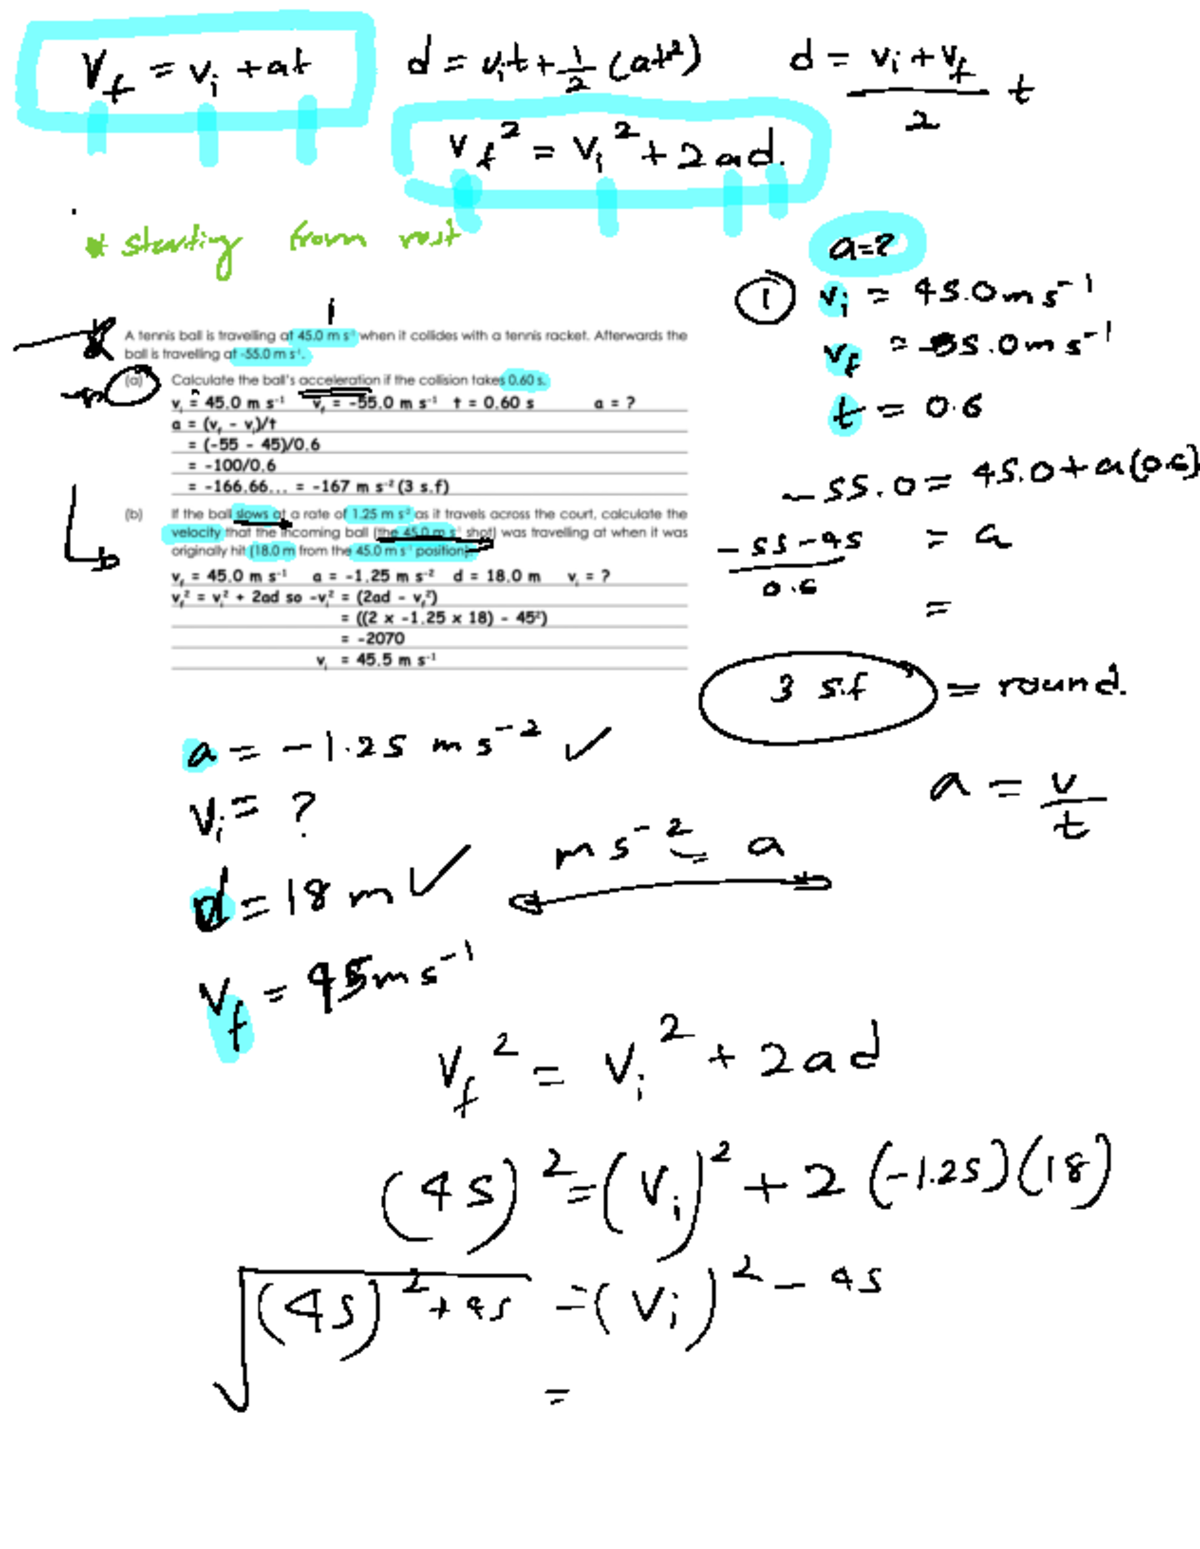 v_f = v_i + at
d = v_i t + 1/2 (at²)
d = (v_i + v_f)/2 t
v_f² = v_i² + 2ad.
* starting from rest
a=?
① v_i = 45.0 m s⁻¹
v_f = -55.0 m s⁻¹
t = 0.6
-55.0 = 45.0 + a(0.6)
(-55-45)/0.6 = a
=
3 s.f = round.
a = v/t
A tennis ball is travelling at 45.0 m s⁻¹ when it collides with a tennis racket. Afterwards the
ball is travelling at -55.0 m s⁻¹.
(a) Calculate the ball's acceleration if the collision takes 0.60 s.
v_i = 45.0 m s⁻¹ v_f = -55.0 m s⁻¹ t = 0.60 s a = ?
a = (v_f - v_i)/t
= (-55 - 45)/0.6
= -100/0.6
= -166.66... = -167 m s⁻² (3 s.f)
(b) If the ball slows at a rate of 1.25 m s² as it travels across the court, calculate the
velocity that the incoming ball (the 45.0 m s⁻¹ shot) was travelling at when it was
originally hit (18.0 m from the 45.0 m s⁻¹ position).
v_f = 45.0 m s⁻¹ a = -1.25 m s⁻² d = 18.0 m v_i = ?
v_f² = v_i² + 2ad so -v_i² = (2ad - v_f²)
= ((2 x -1.25 x 18) - 45²)
= -2070
v_i = 45.5 m s⁻¹
a = -1.25 m s⁻² ✓
v_i = ?
d = 18 m ✓
m s⁻² = a
v_f = 45 m s⁻¹
v_f² = v_i² + 2ad
(45)² = (v_i)² + 2(-1.25)(18)
√((45)² + 45) = (v_i)² - 45
=